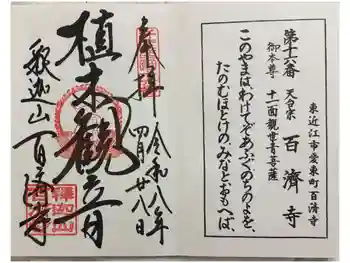 東近江市愛東町百済寺
第十六番 天台宗 百濟寺
御本尊 十一面観世音菩薩
このやまは、わけてぞあふぐのちのよを、
たのむほとけの、みなとおもへば、
奉拝 令和八年
四月廿八日
植木観音
釈迦山 百済寺